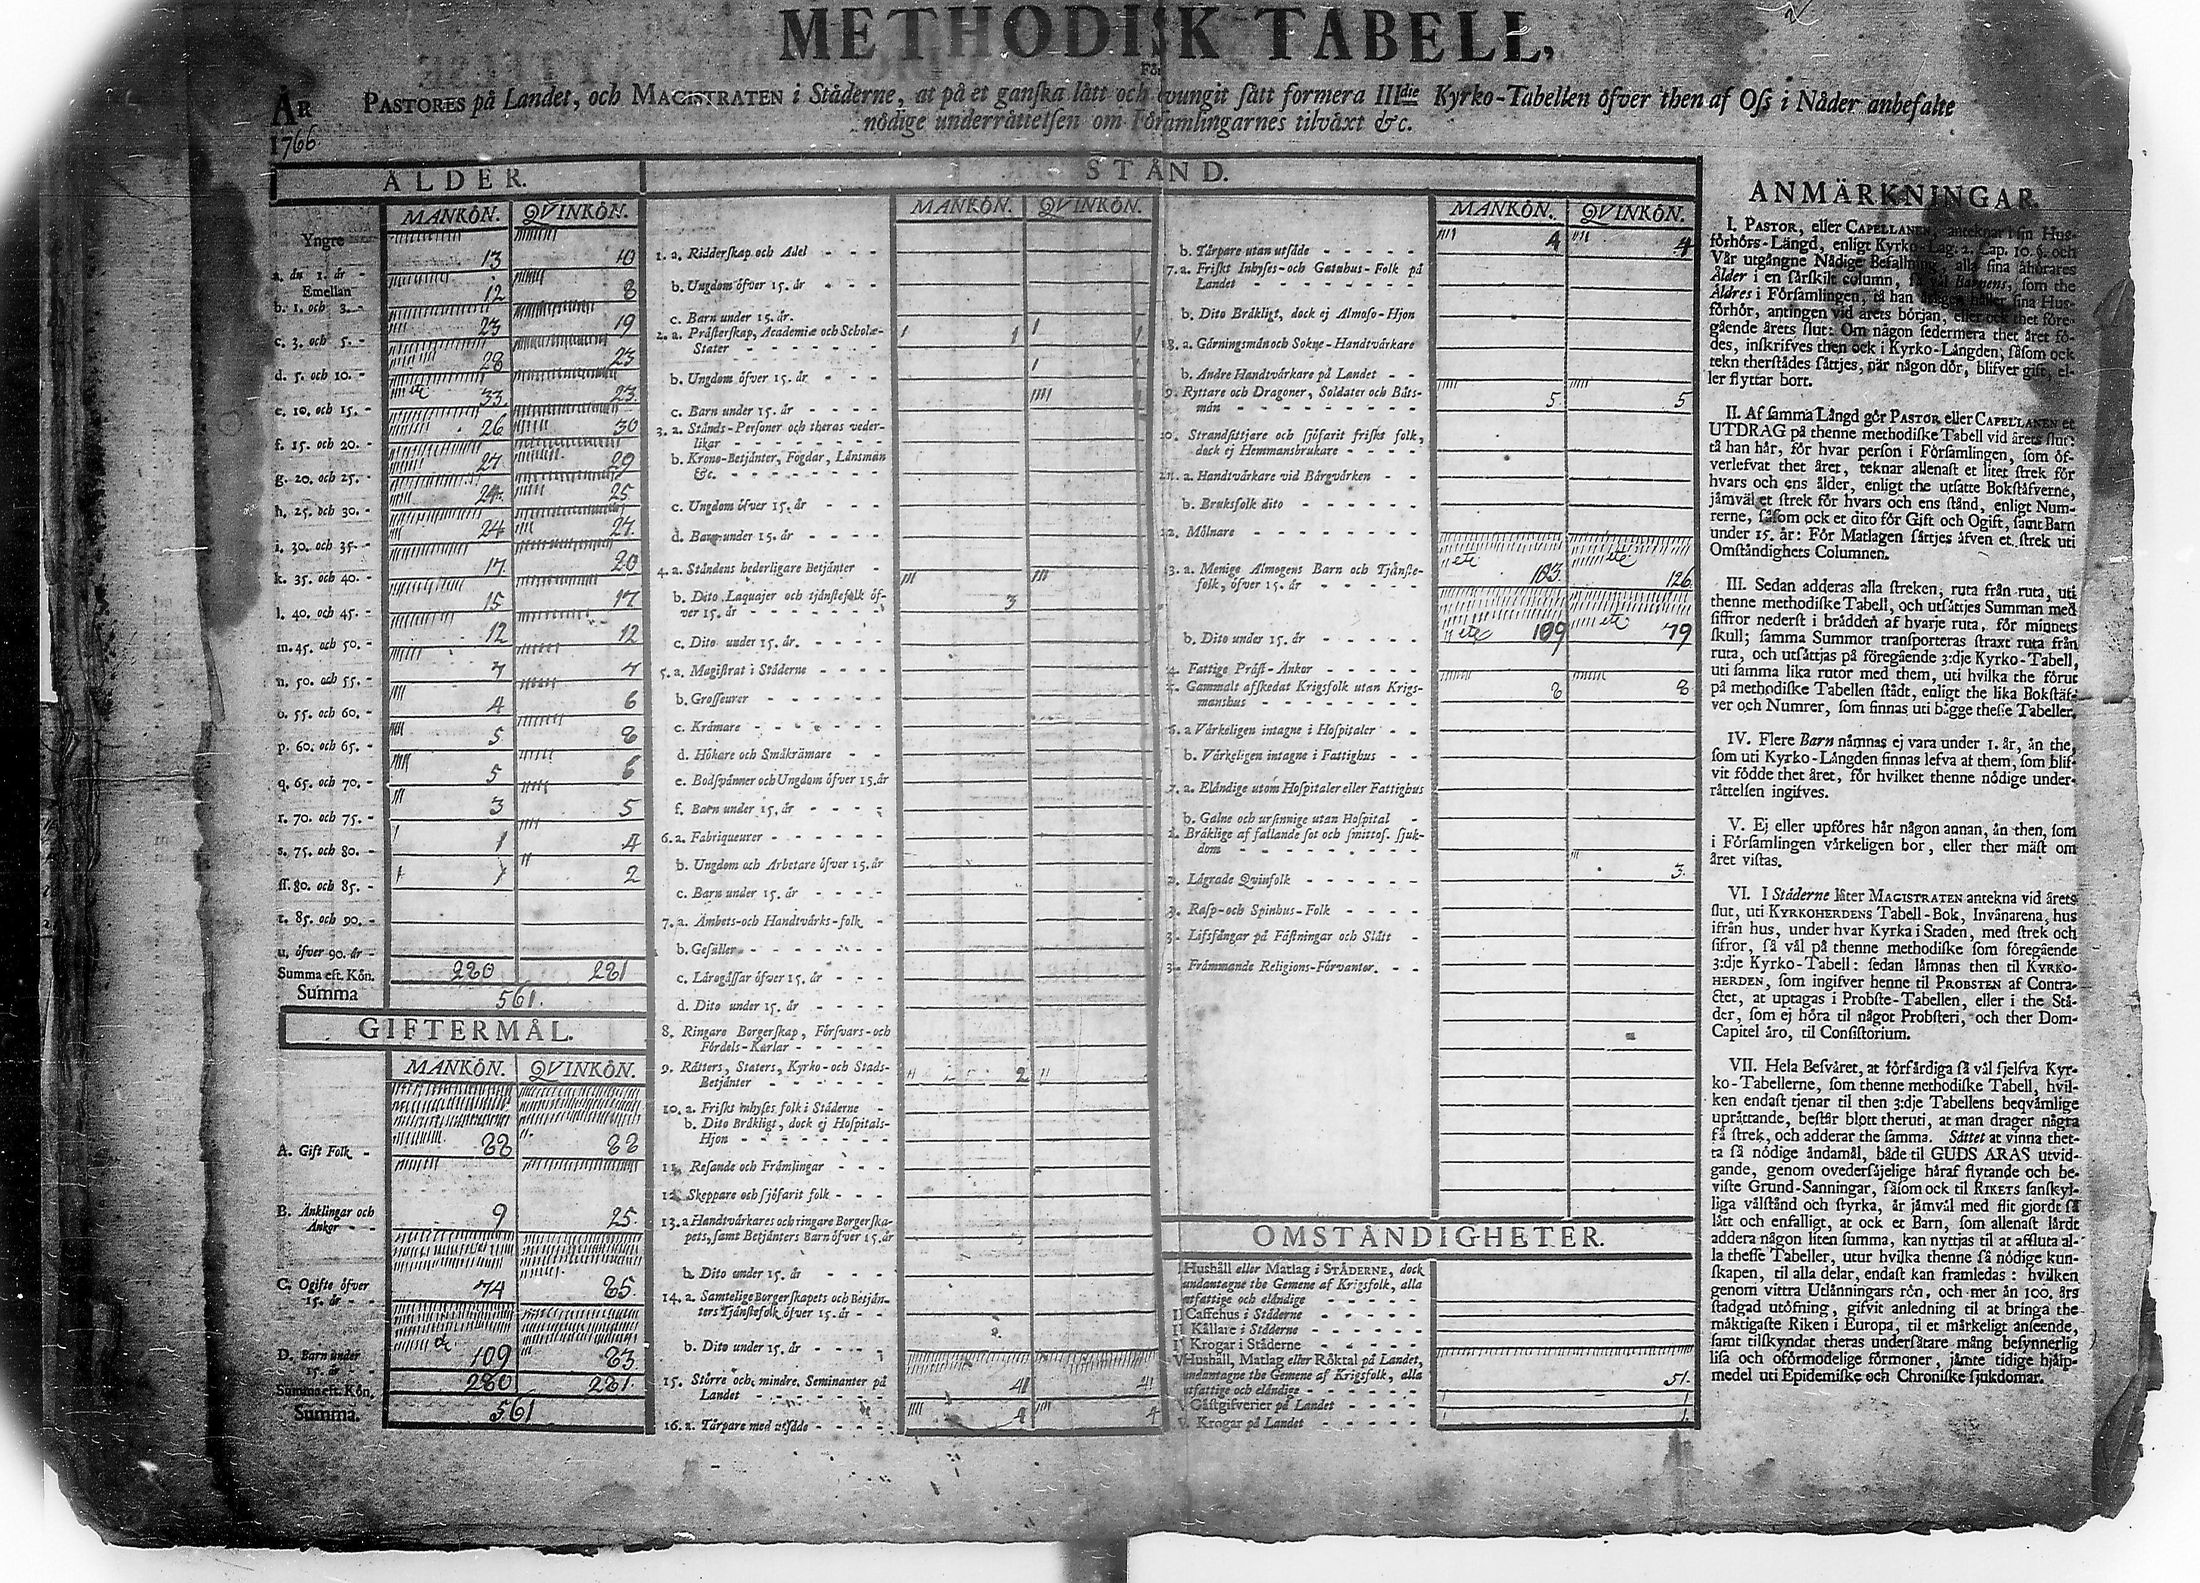 METHODISK TABELL,
För
År
1766.
PASTORES på Landet, och MAGISTRATEN i Städerne, at på et ganska lätt och tvungit sätt formera IIIdie Kyrko-Tabellen öfver then af Oss i Nåder anbefalte
nödige underrättelsen om Församlingarnes tilväxt &c.
ÅLDER.
MANKÖN. QVINKÖN.
Yngre
a. än 1. år - 13 10
Emellan
b. 1. och 3. - 12 8
c. 3. och 5. - 23 19
d. 5. och 10. - 28 23
e. 10. och 15. - etc 33 23
f. 15. och 20. - 26 30
g. 20. och 25. - 27 29
h. 25. och 30. - 24 25
i. 30. och 35. - 24 27
k. 35. och 40. - 17 20
l. 40. och 45. - 15 17
m. 45. och 50. - 12 12
n. 50. och 55. - 7 7
o. 55. och 60. - 4 6
p. 60. och 65. - 5 8
q. 65. och 70. - 5 6
r. 70. och 75. - 3 5
s. 75. och 80. - 1 4
ss. 80. och 85. - 1 2
t. 85. och 90. -
u. öfver 90. år -
Summa eft. Kön. 280 281
Summa 561.
GIFTERMÅL.
MANKÖN. QVINKÖN.
A. Gift Folk - 88 88
B. Änklingar och
Änkor - - 9 25.
C. Ogifte öfver
15. år - - 74 85.
D. Barn under
15. år - 109 83
Summa eft. Kön. 280 281.
Summa. 561
STÅND.
MANKÖN. QVINKÖN.
1. a. Ridderskap och Adel - - - -
b. Ungdom öfver 15. år - - -
c. Barn under 15. år.
2. a. Prästerskap, Academiæ och Scholæ-
Stater - - - - - - - 1 1
b. Ungdom öfver 15. år - - - 1
c. Barn under 15. år - - - -
3. a. Stånds-Personer och theras veder-
likar - - - - - - -
b. Krono-Betjänter, Fogdar, Länsmän
&c. - - - - - - -
c. Ungdom öfver 15. år - - -
d. Barn under 15. år - - - -
4. a. Ståndens hederligare Betjänter - -
b. Dito Laquajer och tjänstefolk öf-
ver 15. år - - - - - - 3
c. Dito under 15. år. - - - -
5. a. Magistrat i Städerne - - - -
b. Grosseurer - - - - - -
c. Krämare - - - - - -
d. Hökare och Småkrämare - -
e. Bodsvänner och Ungdom öfver 15. år
f. Barn under 15. år - - - -
6. a. Fabriqueurer - - - - - -
b. Ungdom och Arbetare öfver 15. år
c. Barn under 15. år - - - -
7. a. Ämbets-och Handtvärks-folk -
b. Gesäller - - - - - -
c. Lärogåssar öfver 15. år - - -
d. Dito under 15. år - - - -
8. Ringare Borgerskap, Försvars-och
Fördels-Karlar - - - - -
9. Rätters, Staters, Kyrko-och Stads-
Betjänter - - - - - - 2
10. a. Friskt inhyses folk i Städerne -
b. Dito Bräkligt, dock ej Hospitals-
Hjon - - - - - - -
11. Resande och Främlingar - - -
12. Skeppare och sjöfarit folk - - -
13. a Handtvärkares och ringare Borgerska-
pets, samt Betjänters Barn öfver 15. år
b. Dito under 15. år - - -
14. a. Samtelige Borgerskapets och Betjän-
ters Tjänstefolk öfver 15. år -
b. Dito under 15. år - - - -
15. Större och mindre Hemmanter på
Landet - - - - - - - 41 41
16. a. Tårpare med utsäde - - - - 4 4
MANKÖN. QVINKÖN.
b. Tårpare utan utsäde - - - - - 4 4
7. a. Friskt Inhyses-och Gatuhus-Folk på
Landet - - - - - - -
b. Dito Bräkligt, dock ej Almoso-Hjon
18. a. Gärningsmän och Sokne-Handtvärkare
b. Andre Handtvärkare på Landet - -
9. Ryttare och Dragoner, Soldater och Båts-
män - - - - - - - 5 5
10. Strandsittjare och sjöfarit friskt folk,
dock ej Hemmansbrukare - - - -
11. a. Handtvärkare vid Bärgvärken - -
b. Bruksfolk dito - - - - - -
12. Mölnare - - - - - - -
13. a. Menige Almogens Barn och Tjänste-
folk, öfver 15. år - - - - etc 103. etc 126
b. Dito under 15. år - - - - - etc 109 etc 79
4. Fattige Präst-Änkor - - - -
5. Gammalt afskedat Krigsfolk utan Krigs-
manshus - - - - - - - 8 8
6. a Värkeligen intagne i Hospitaler - -
b. Värkeligen intagne i Fattighus - -
7. a. Eländige utom Hospitaler eller Fattighus
b. Galne och ursinnige utan Hospital -
1. Bräklige af fallande sot och smittos. sjuk-
dom - - - - - - -
2. Lägrade Qvinfolk - - - - - - 3.
3. Rasp-och Spinhus-Folk - - - -
3. Lifsfångar på Fästningar och Slått -
3. Främmande Religions-Förvanter. - -
OMSTÄNDIGHETER.
Hushåll eller Matlag i STÄDERNE, dock
undantagne the Gemene af Krigsfolk, alla
utfattige och eländige - - - - -
Caffehus i Städerne - - - - -
Källare i Städerne - - - - -
Krogar i Städerne - - - - -
Hushåll, Matlag eller Röktal på Landet,
undantagne the Gemene af Krigsfolk, alla
utfattige och eländige - - - - - 51.
Gästgifverier på Landet - - - - 1
Krogar på Landet - - - - - 1.
ANMÄRKNINGAR.
I. PASTOR, eller CAPELLANEN, anteknar i sin Hus-
förhörs-Längd, enligt Kyrko-Lag. 2. Cap. 10. §. och
Vår utgångne Nådige Befallning, alla sina åhörares
Ålder i en särskilt column, så väl Barnens, som the
Äldres i Församlingen, tå han årligen håller sina Hus-
förhör, antingen vid årets början, eller ock thet före-
gående årets slut: Om någon sedermera thet året fö-
des, inskrifves then ock i Kyrko-Längden; såsom ock
tekn therstädes sättjes, när någon dör, blifver gift, el-
ler flyttar bort.
II. Af samma Längd gör PASTOR eller CAPELLANEN et
UTDRAG på thenne methodiske Tabell vid årets slut:
tå han här, för hvar person i Församlingen, som öf-
verlefvat thet året, teknar allenast et litet strek för
hvars och ens ålder, enligt the utsatte Bokstäfverne,
jämväl et strek för hvars och ens stånd, enligt Num-
rerne, såsom ock et dito för Gift och Ogift, samt Barn
under 15. år: För Matlagen sättjes äfven et strek uti
Omständighets Columnen.
III. Sedan adderas alla streken, ruta från ruta, uti
thenne methodiske Tabell, och utsättjes Summan med
siffror nederst i brädden af hvarje ruta, för minnets
skull; samma Summor transporteras straxt ruta från
ruta, och utsättjas på föregående 3:dje Kyrko-Tabell,
uti samma lika rutor med them, uti hvilka the förut
på methodiske Tabellen städt, enligt the lika Bokstäf-
ver och Numrer, som finnas uti bägge thesse Tabeller.
IV. Flere Barn nämnas ej vara under 1. år, än the,
som uti Kyrko-Längden finnas lefva af them, som blif-
vit födde thet året, för hvilket thenne nödige under-
rättelsen ingifves.
V. Ej eller upföres här någon annan, än then, som
i Församlingen värkeligen bor, eller ther mäst om
året vistas.
VI. I Städerne låter MAGISTRATEN antekna vid årets
slut, uti KYRKOHERDENS Tabell-Bok, Invånarena, hus
ifrån hus, under hvar Kyrka i Staden, med strek och
sifror, så väl på thenne methodiske som föregående
3:dje Kyrko-Tabell: sedan lämnas then til KYRKO-
HERDEN, som ingifver henne til PROBSTEN af Contra-
ctet, at uptagas i Probste-Tabellen, eller i the Stä-
der, som ej höra til något Probsteri, och ther Dom-
Capitel äro, til Consistorium.
VII. Hela Besväret, at förfärdiga så väl sjelfva Kyr-
ko-Tabellerne, som thenne methodiske Tabell, hvil-
ken endast tjenar til then 3:dje Tabellens beqvämlige
uprättande, består blott theruti, at man drager några
få strek, och adderar the samma. Sättet at vinna thet-
ta så nödige ändamål, både til GUDS ÄRAS utvid-
gande, genom ovedersäjelige häraf flytande och be-
viste Grund-Sanningar, såsom ock til RIKETS sanskyl-
liga välstånd och styrka, är jämväl med flit gjordt så
lätt och enfalligt, at ock et Barn, som allenast lärdt
addera någon liten summa, kan nyttjas til at affluta al-
la thesse Tabeller, utur hvilka thenne så nödige kun-
skapen, til alla delar, endast kan framledas: hvilken
genom vittra Utlänningars rön, och mer än 100. års
stadgad utöfning, gifvit anledning til at bringa the
mäktigaste Riken i Europa, til et märkeligt anseende,
samt tilskyndat theras undersåtare mång besynnerlig
lisa och oförmodelige förmoner, jämte tidige hjälp-
medel uti Epidemiske och Chroniske sjukdomar.